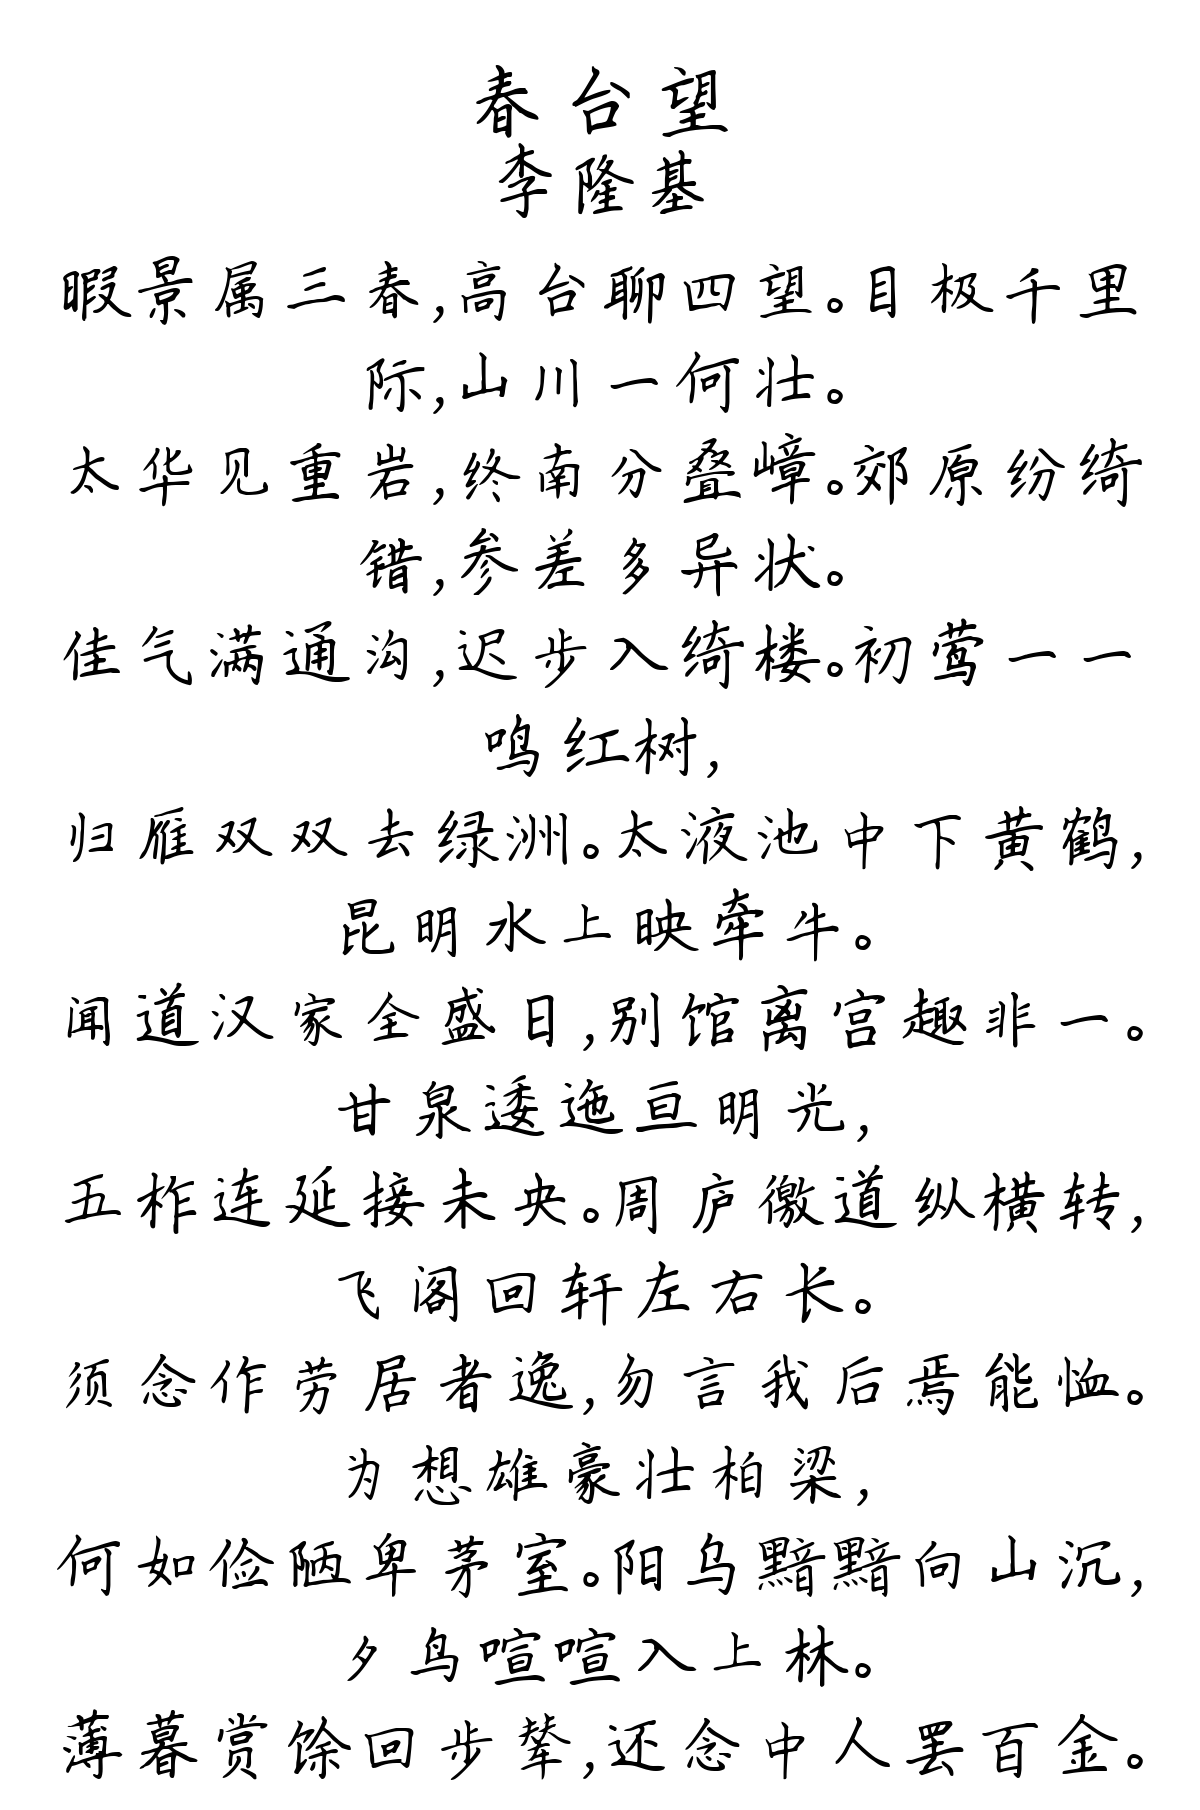 春台望
李隆基
暇景属三春,高台聊四望。目极千里
际,山川一何壮。
太华见重岩,终南分叠嶂。郊原纷绮
错,参差多异状。
佳气满通沟,迟步入绮楼。初莺一一
鸣红树,
归雁双双去绿洲。太液池中下黄鹤,
昆明水上映牵牛。
闻道汉家全盛日,别馆离宫趣非一。
甘泉逶迤亘明光,
五柞连延接未央。周庐徼道纵横转,
飞阁回轩左右长。
须念作劳居者逸,勿言我后焉能恤。
为想雄豪壮柏梁,
何如俭陋卑茅室。阳乌黯黯向山沉,
夕鸟喧喧入上林。
薄暮赏馀回步辇,还念中人罢百金。